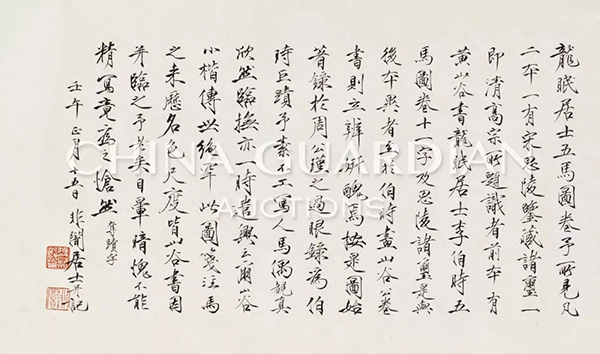 龍眠居士五馬圖卷予所見凡
二本一有宋思陵鑒藏諸璽一
即清高宗所題識者前本有
黃山谷書龍眠居士李伯時五
馬圖卷十一字及思陵諸璽是與
後本異者至於伯時畫山谷箋
書則立辨妍醜焉按是圖始
著錄於周公瑾之過眼錄為伯
時巨蹟予素不工寫人馬偶覩真
欣然臨撫亦一時喜興云爾山谷
小楷傳世絕罕此圖箋注馬
之來歷名色尺度皆山谷書因
并臨之予老矣目暈指愧不能
精寫竟為之愴然
真下奪蹟字
壬午正月十五日非闇居士并記
CHINA GUARDIAN
AUCTIONS